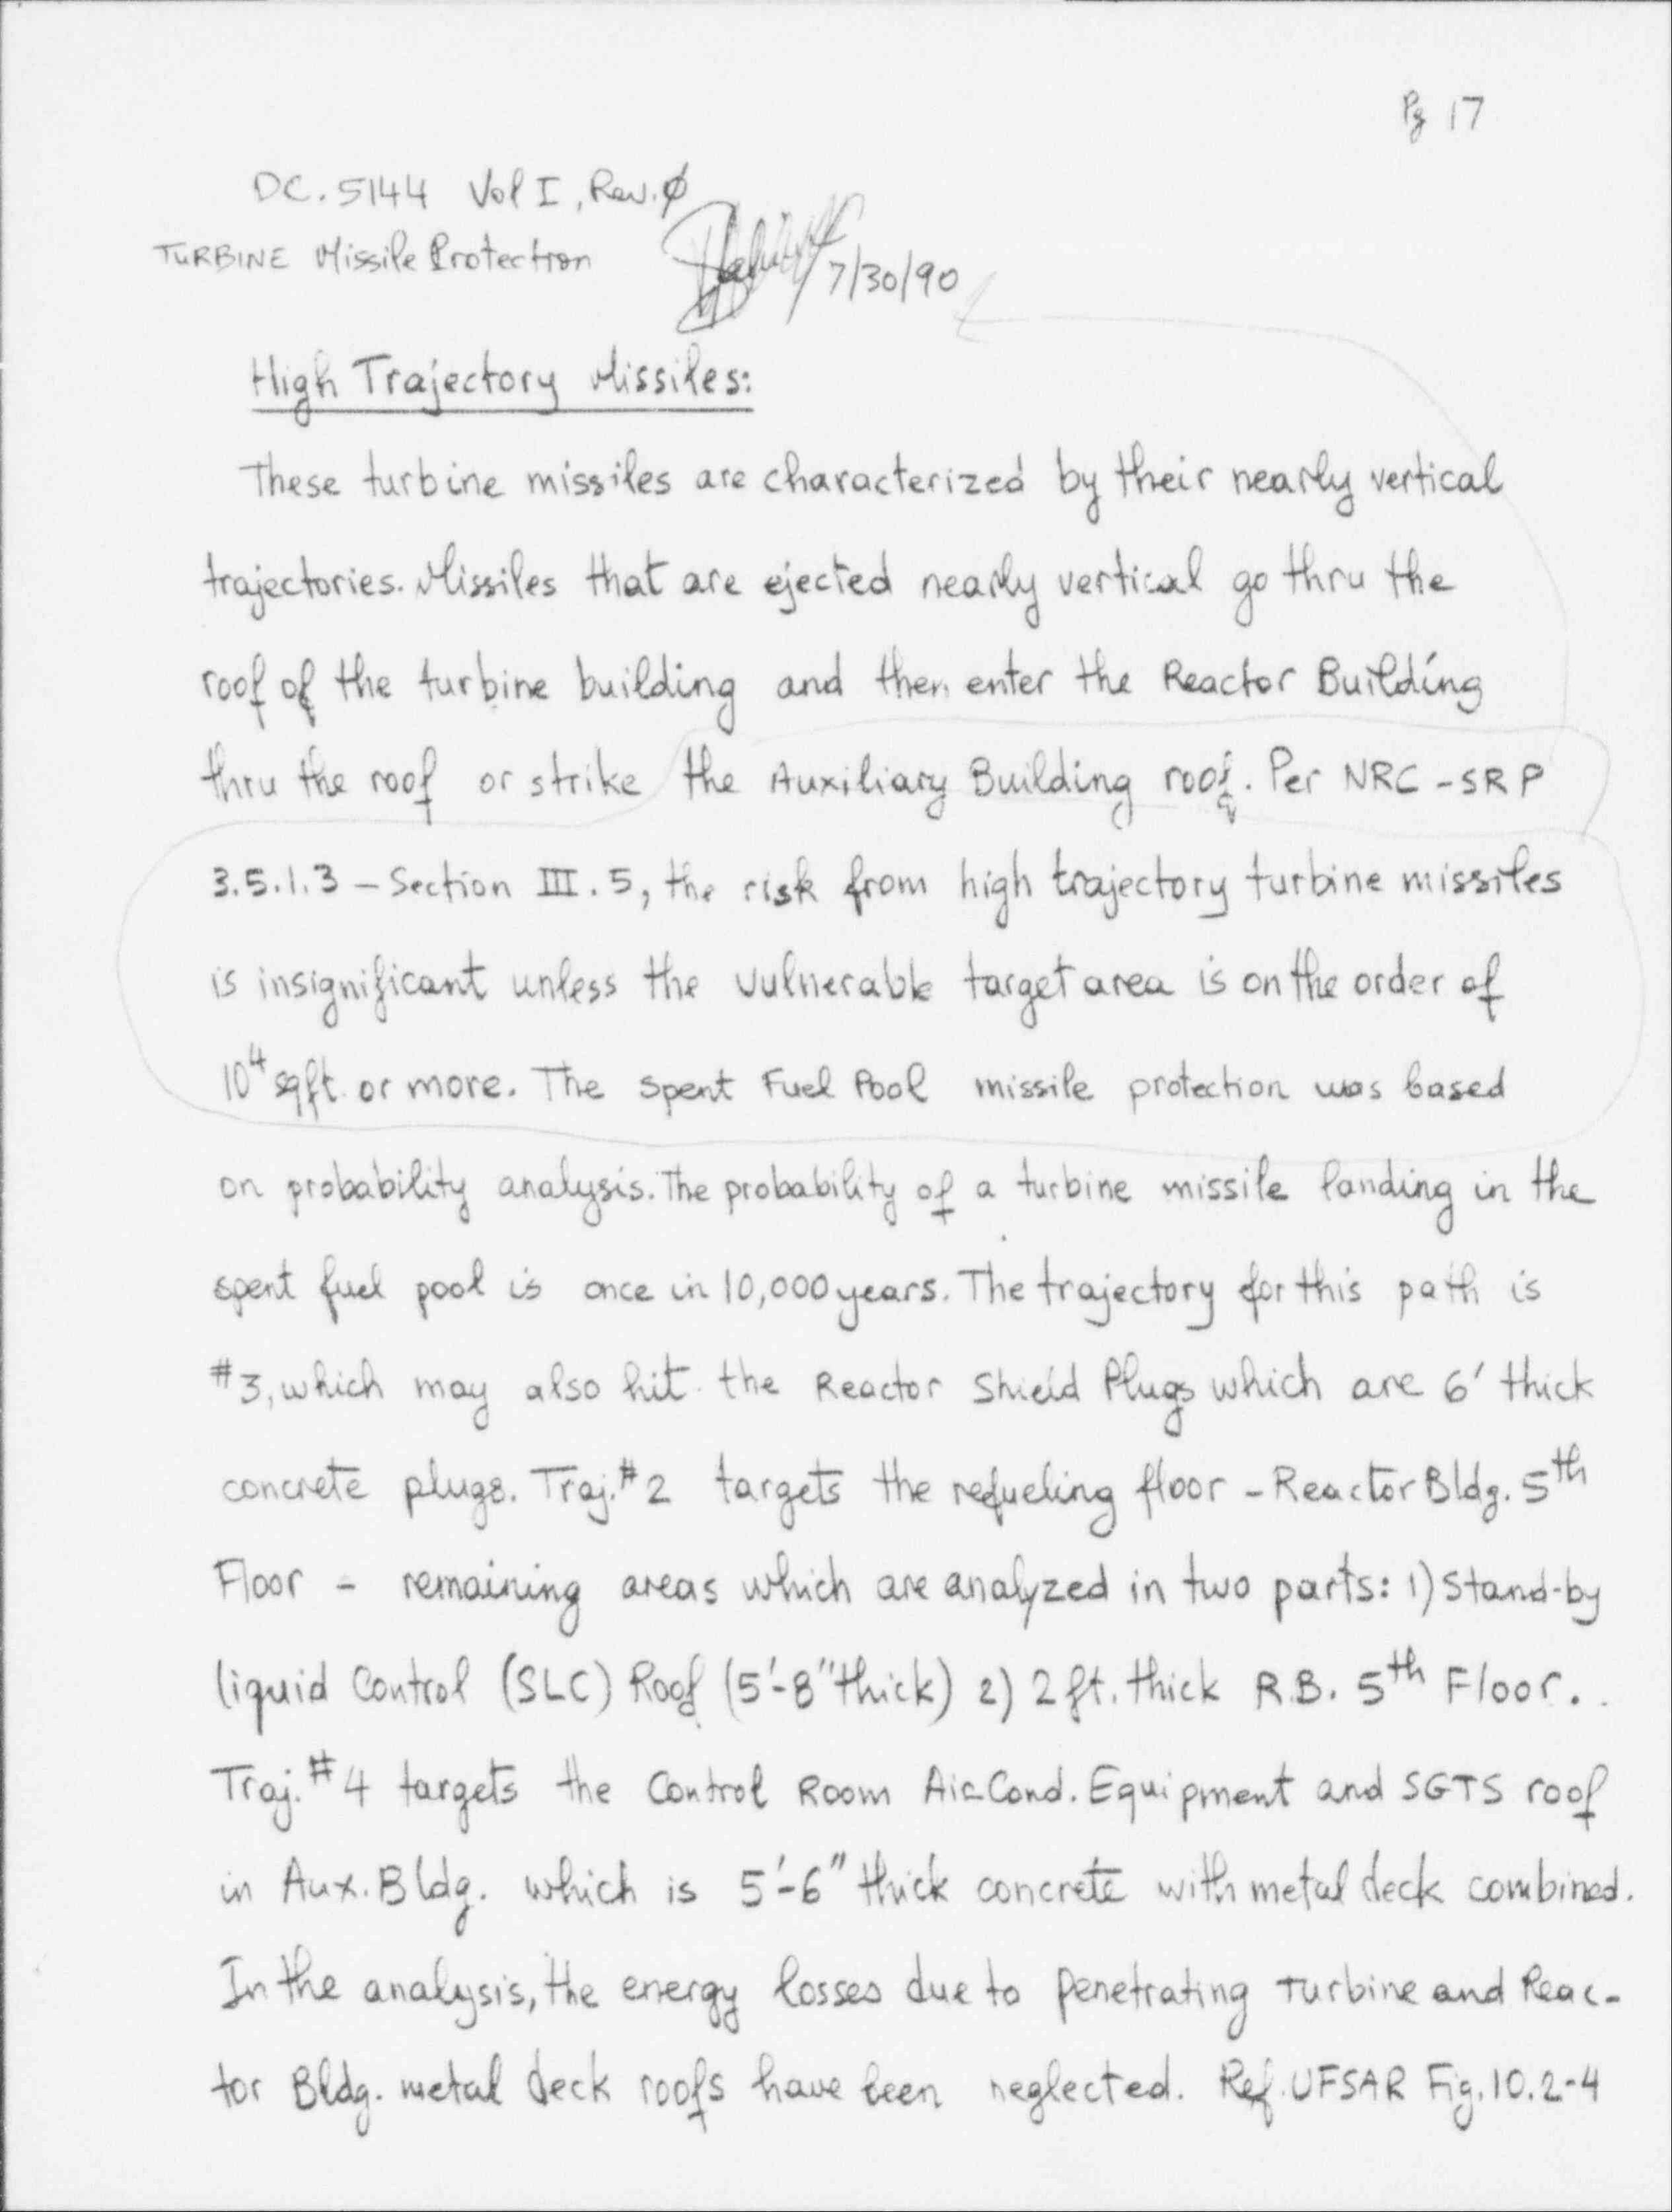 Pg 17
DC. 5144 Vol I, Rev. Ø
TURBINE Missile Protection
7/30/90
High Trajectory Missiles:
These turbine missiles are characterized by their nearly vertical
trajectories. Missiles that are ejected nearly vertical go thru the
roof of the turbine building and then enter the Reactor Building
thru the roof or strike the Auxiliary Building roof. Per NRC - SRP
3.5.1.3 - Section III. 5, the risk from high trajectory turbine missiles
is insignificant unless the vulnerable target area is on the order of
10⁴ sqft. or more. The Spent Fuel Pool missile protection was based
on probability analysis. The probability of a turbine missile landing in the
spent fuel pool is once in 10,000 years. The trajectory for this path is
#3, which may also hit the Reactor Shield Plugs which are 6' thick
concrete plugs. Traj. #2 targets the refueling floor - Reactor Bldg. 5th
Floor - remaining areas which are analyzed in two parts: 1) Stand-by
liquid Control (SLC) Roof (5'-8" thick) 2) 2 ft. thick R.B. 5th Floor.
Traj. #4 targets the Control Room Air Cond. Equipment and SGTS roof
in Aux. Bldg. which is 5'-6" thick concrete with metal deck combined.
In the analysis, the energy losses due to penetrating Turbine and Reac-
tor Bldg. metal deck roofs have been neglected. Ref. UFSAR Fig. 10.2-4